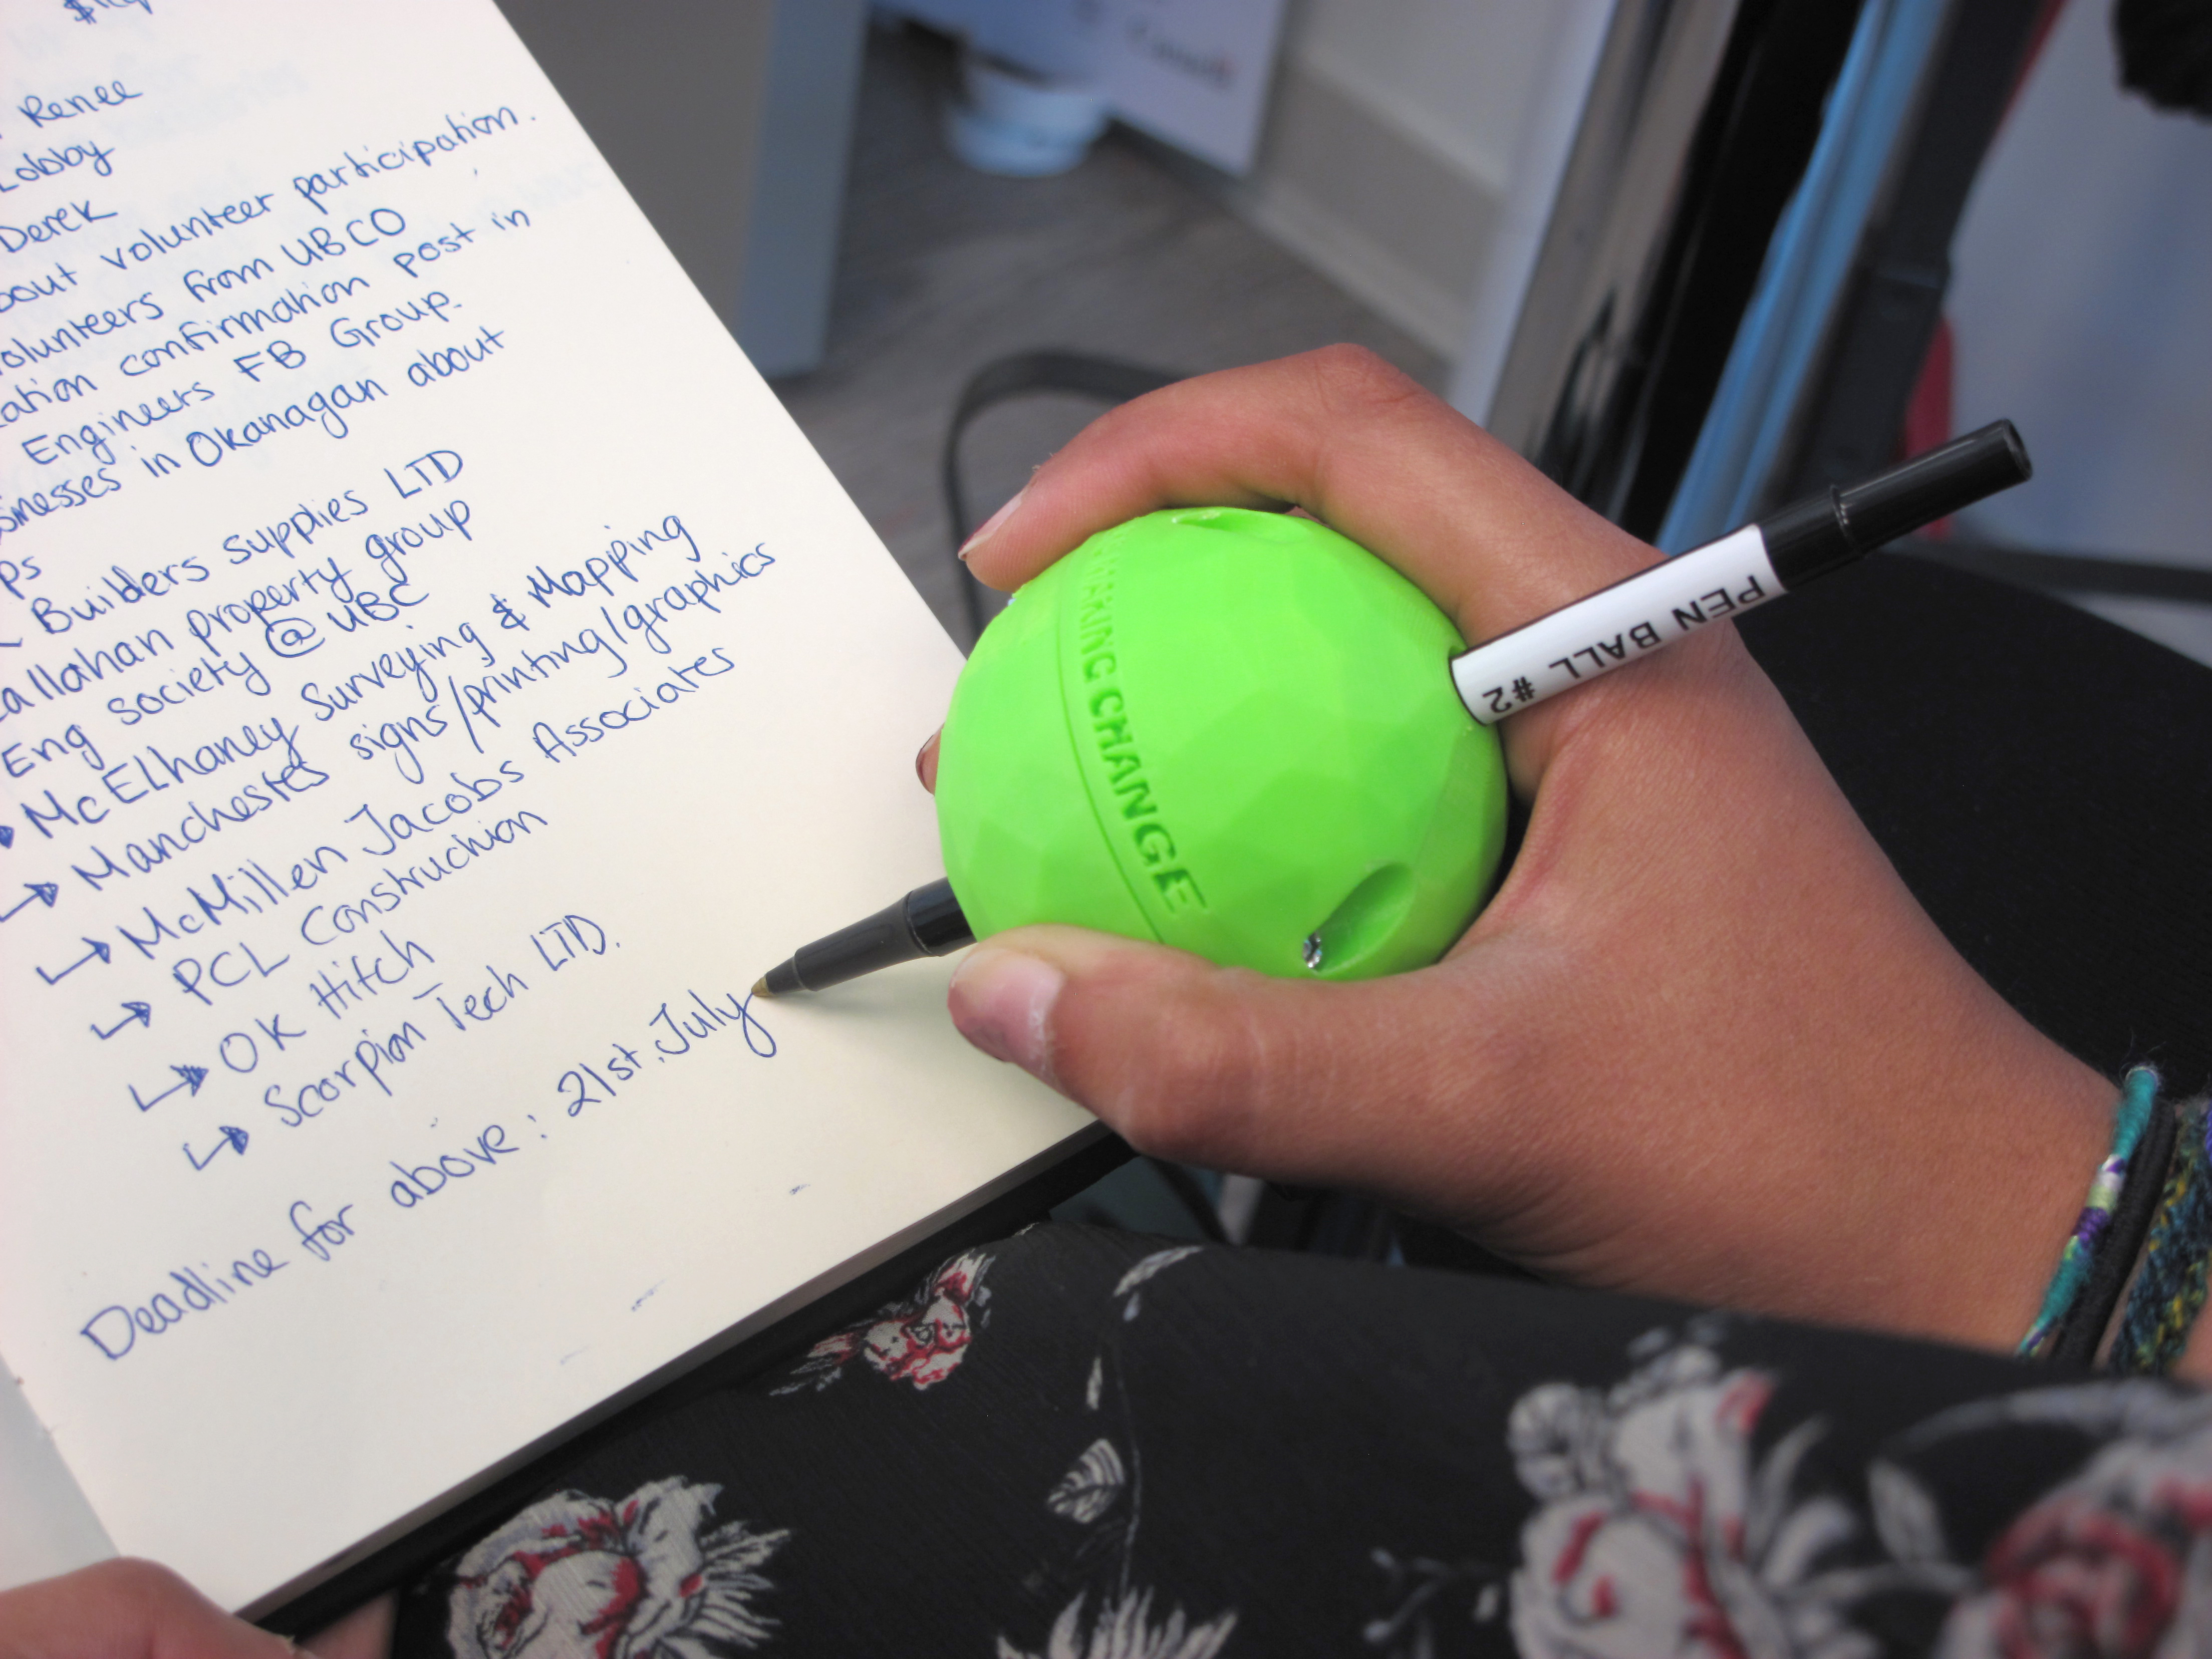 Renee
Lobby
Derek
about volunteer participation.
volunteers from UBCO
confirmation post in
Engineers FB Group.
in Okanagan about
Builders supplies LTD
property group
Eng society @ UBC
McElhaney Surveying & Mapping
Manchester signs/printing/graphics
McMillen Jacobs Associates
PCL Construction
OK Hitch
Scorpion Tech LTD.
Deadline for above: 21st July
CHANGE
PEN BALL #2
Canada